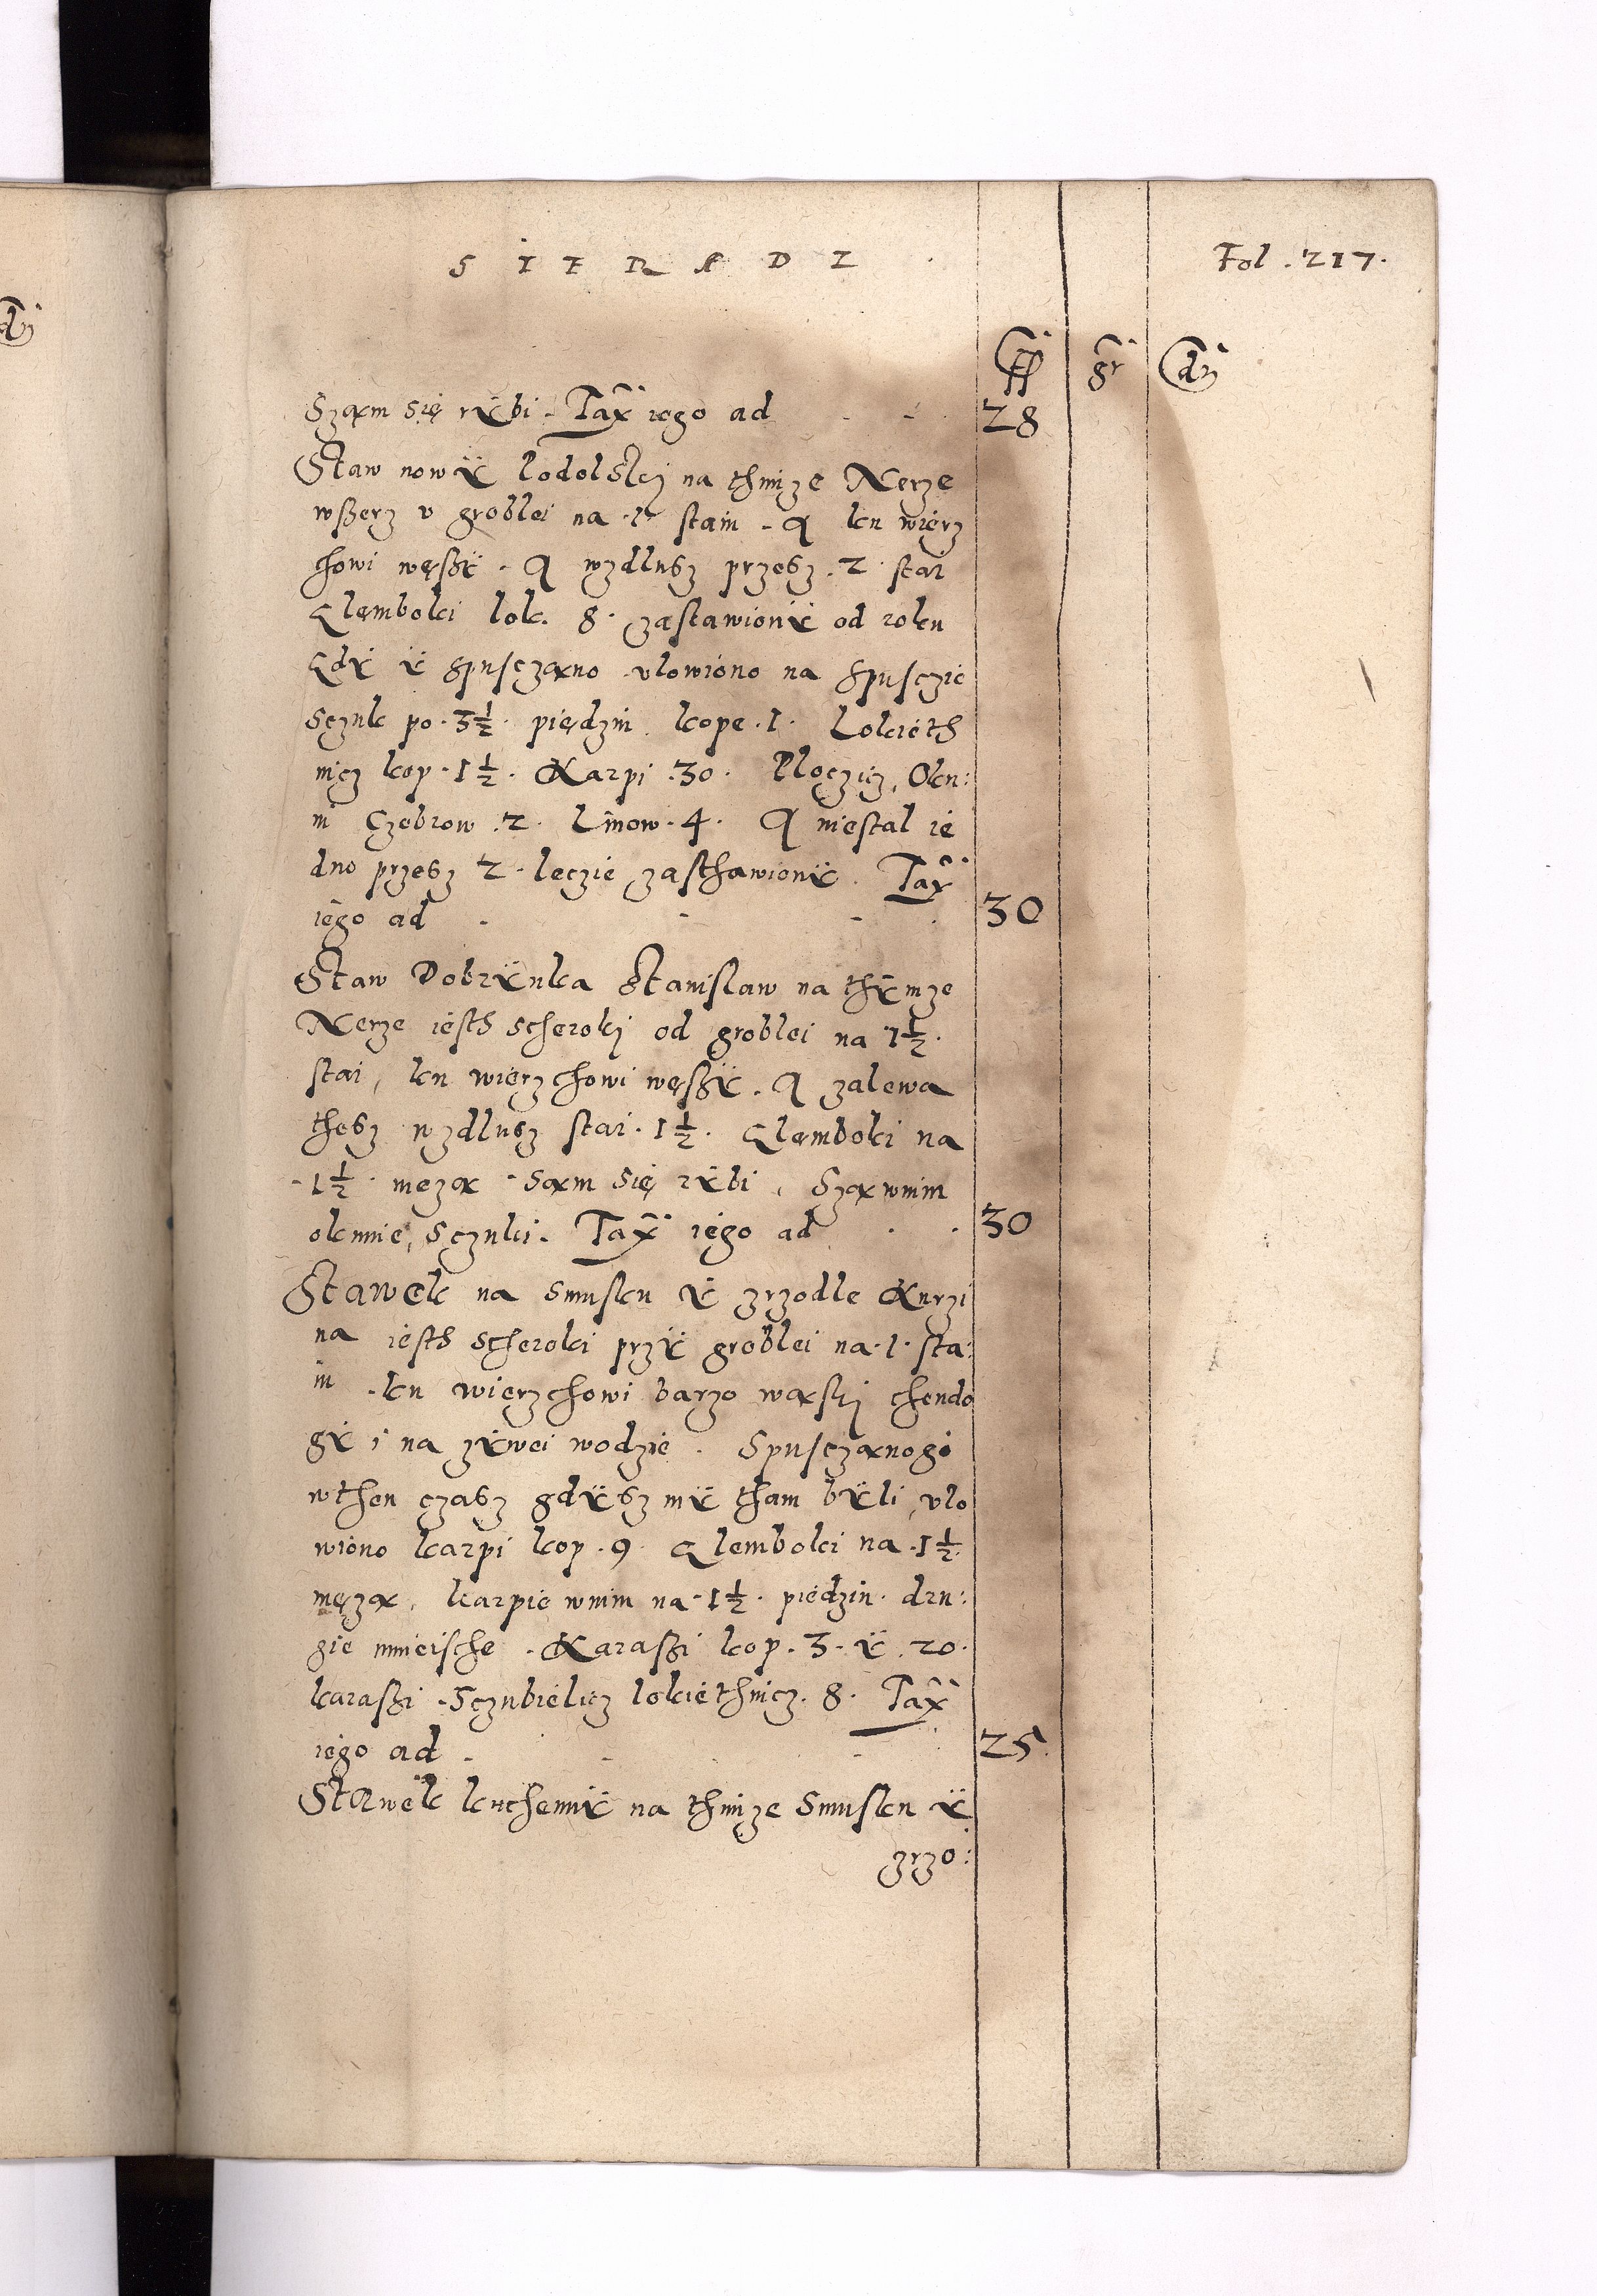 SIERADZ.
Fol. 217.
fl gr dn
Sząm się rÿbi. Tax iego ad 28
Staw nowÿ lodolskj na thimze Nerze
wszerz v groblei na 1 stain. A ku wierz
chowi węszÿ. A wzdlusz przesz. 2 stai
Glęmboki lok. 8. zastawionÿ od roku
Gdÿ ÿ spuscząno vlowiono na spusczie
sczuk po. 3½. piędzin kope. 1. Lokieth
nicz kop. 1½. Karpi. 30. Ploczicz, Oku:
ni Czebrow. 2. Linow. 4. A niestal ie
dno przesz 2. leczie zasthawionÿ. Tax
iego ad 30
Staw Dobrÿnka Stanislaw na thÿmze
Nerze iesth scherokj od groblei na 1½.
stai, ku wierzchowi węszÿ. A zalewa
thesz wzdlusz stai. 1½. Glęmboki na
1½. mezą. sąm się rÿbi, Szą wnim
okunie, sczuki. Tax iego ad 30
Stawek na smusku ÿ zrzodle Kurzi
na iesth scheroki przÿ groblei na. 1. sta:
in. ku wierzchowi barzo wąskj chendo
gÿ i na zÿwei wodzie. Spuscząnogo
wthen czasz gdÿsz mÿ tham bÿli, vlo
wiono karpi kop. 9. Glemboki na. 1½.
męzą, karpie wnim na. 1½. piedzin. dru:
gie mnieische. Karaszi kop. 3. ÿ. 20.
karaszi. Sczubielicz lokiethnicz. 8. Tax
iego ad 25.
Stawek kuchennÿ na thimze Smusku ÿ
zrzo: